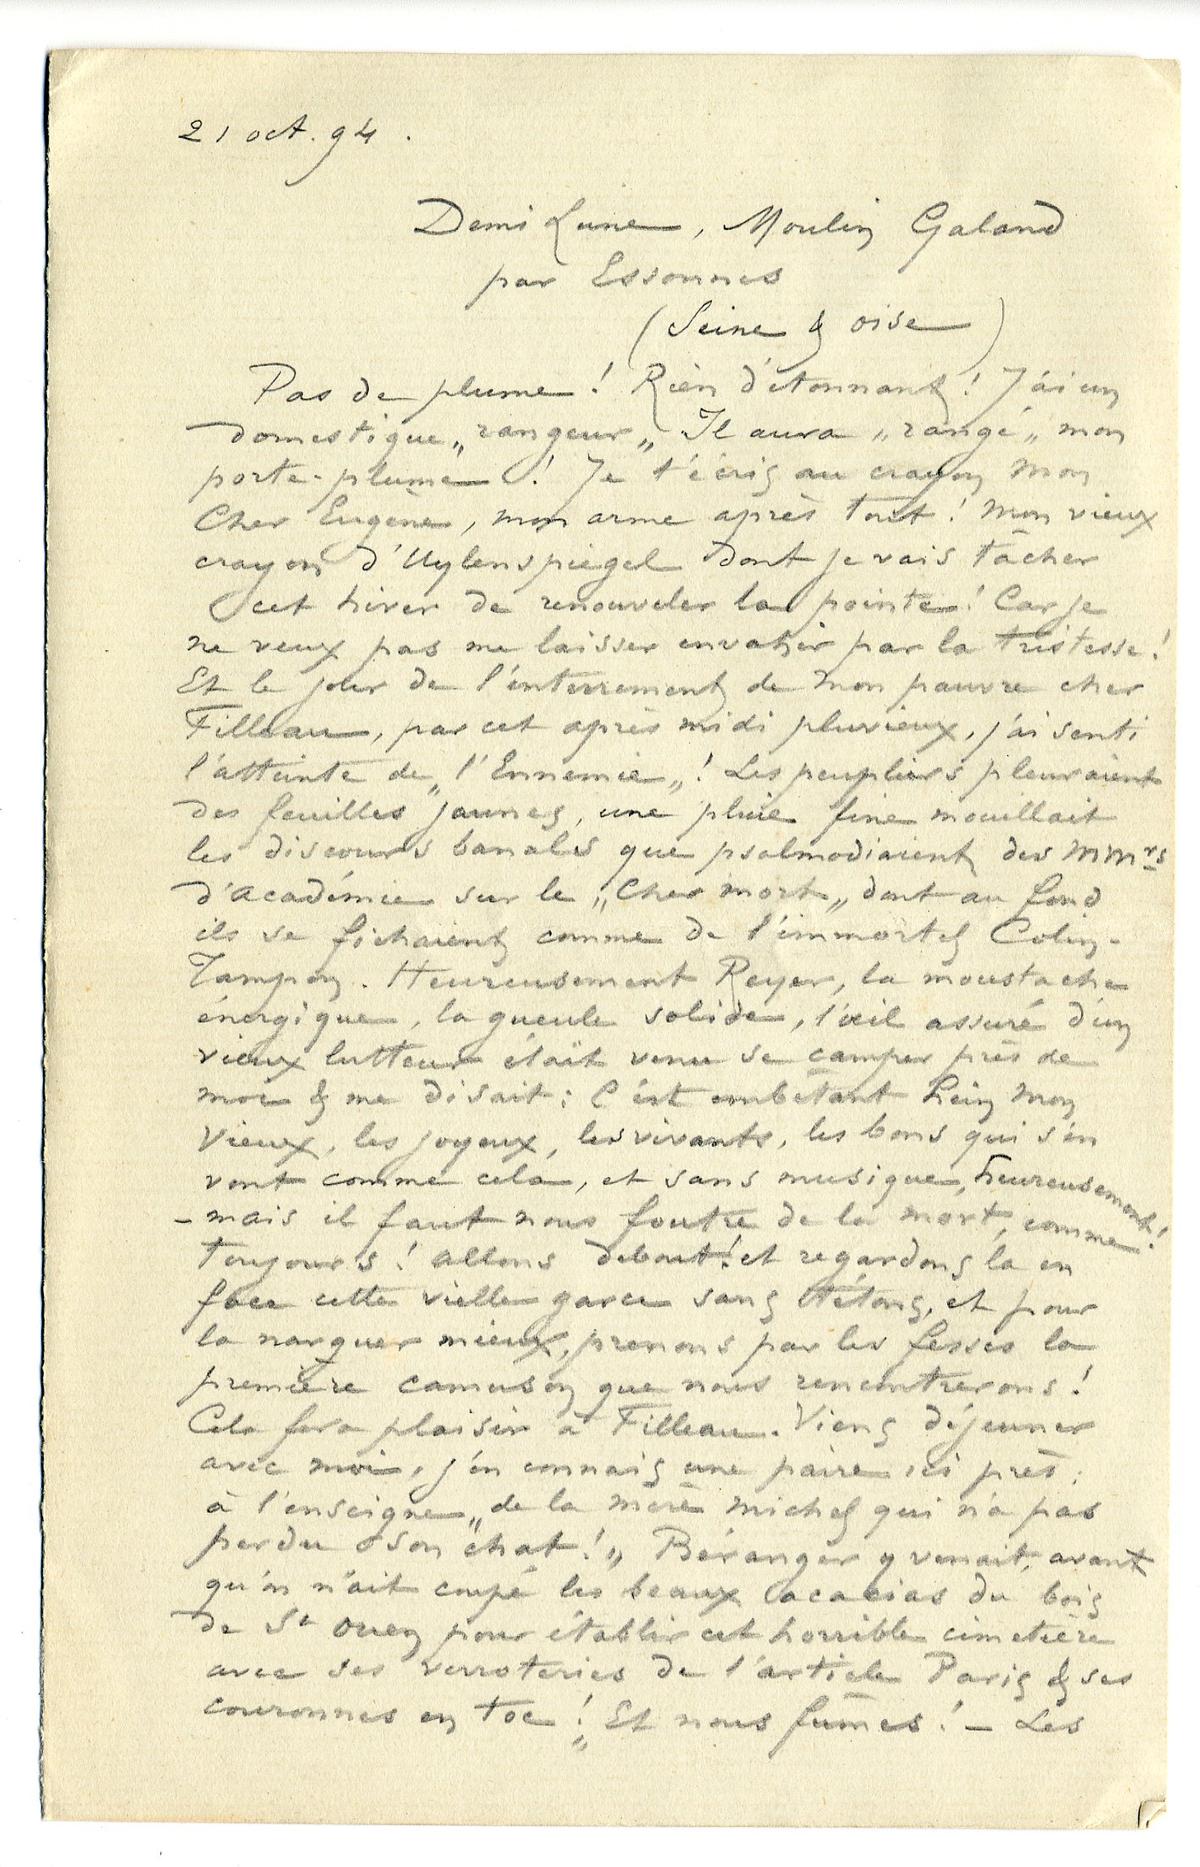 21 oct. 94.
Demi Lune, Moulin Galand
par Essonnes
(Seine & oise)
Pas de plume! Rien d'étonnant! J'ai un
domestique „rangeur„ Il aura „rangé„ mon
porte-plume! Je t'écris au crayon Mon
Cher Eugène, mon arme après tout! Mon vieux
crayon d'Uylenspiegel dont je vais tâcher
cet hiver de renouveler la pointe! Car je
ne veux pas me laisser envahir par la tristesse!
Et le jour de l'enterrement de mon pauvre cher
Filleau, par cet après midi pluvieux, j'ai senti
l'atteinte de „l'Ennemie„! Les peupliers pleuraient
des feuilles jaunes, une pluie fine mouillait
les discours banals que psalmodiaient des MMrs
d'Académie sur le „Cher mort„ dont au fond
ils se fichaient comme de l'immortel Colin-
Tampon. Heureusement Reyer, la moustache
énergique, la gueule solide, l'œil assuré d'un
vieux lutteur était venu se camper près de
moi & me disait: C'est embêtant hein mon
vieux, les joyeux, les vivants, les bons qui s'en
vont comme cela, et sans musique, heureusement!
– mais il faut nous foutre de la mort, comme
toujours! allons debout! et regardons la en
face cette vielle garce sans tétons, et pour
la narguer mieux, prenons par les fesses la
première camuson que nous rencontrerons!
Cela fera plaisir à Filleau. Viens déjeuner
avec moi, j'en connais une paire ici près;
à l'enseigne „de la mère michel qui n'a pas
perdu son chat!„ Béranger y venait avant
qu'on n'ait coupé les beaux acacias du bois
de St Ouen pour établir cet horrible cimetière
avec ses verroteries de l'article Paris & ses
couronnes en toc!„ Et nous fûmes! – Les